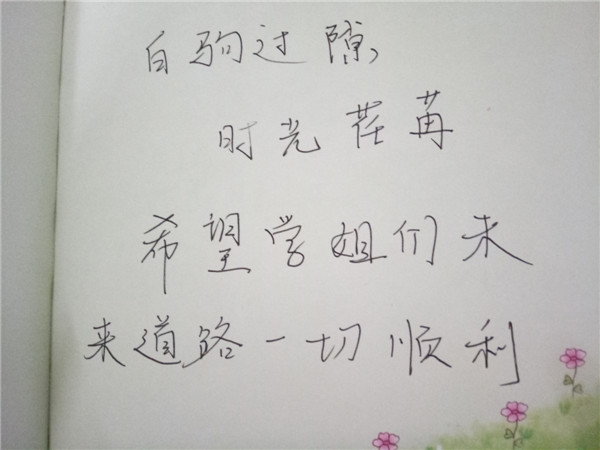 白驹过隙,
时光荏苒
希望学姐们未
来道路一切顺利